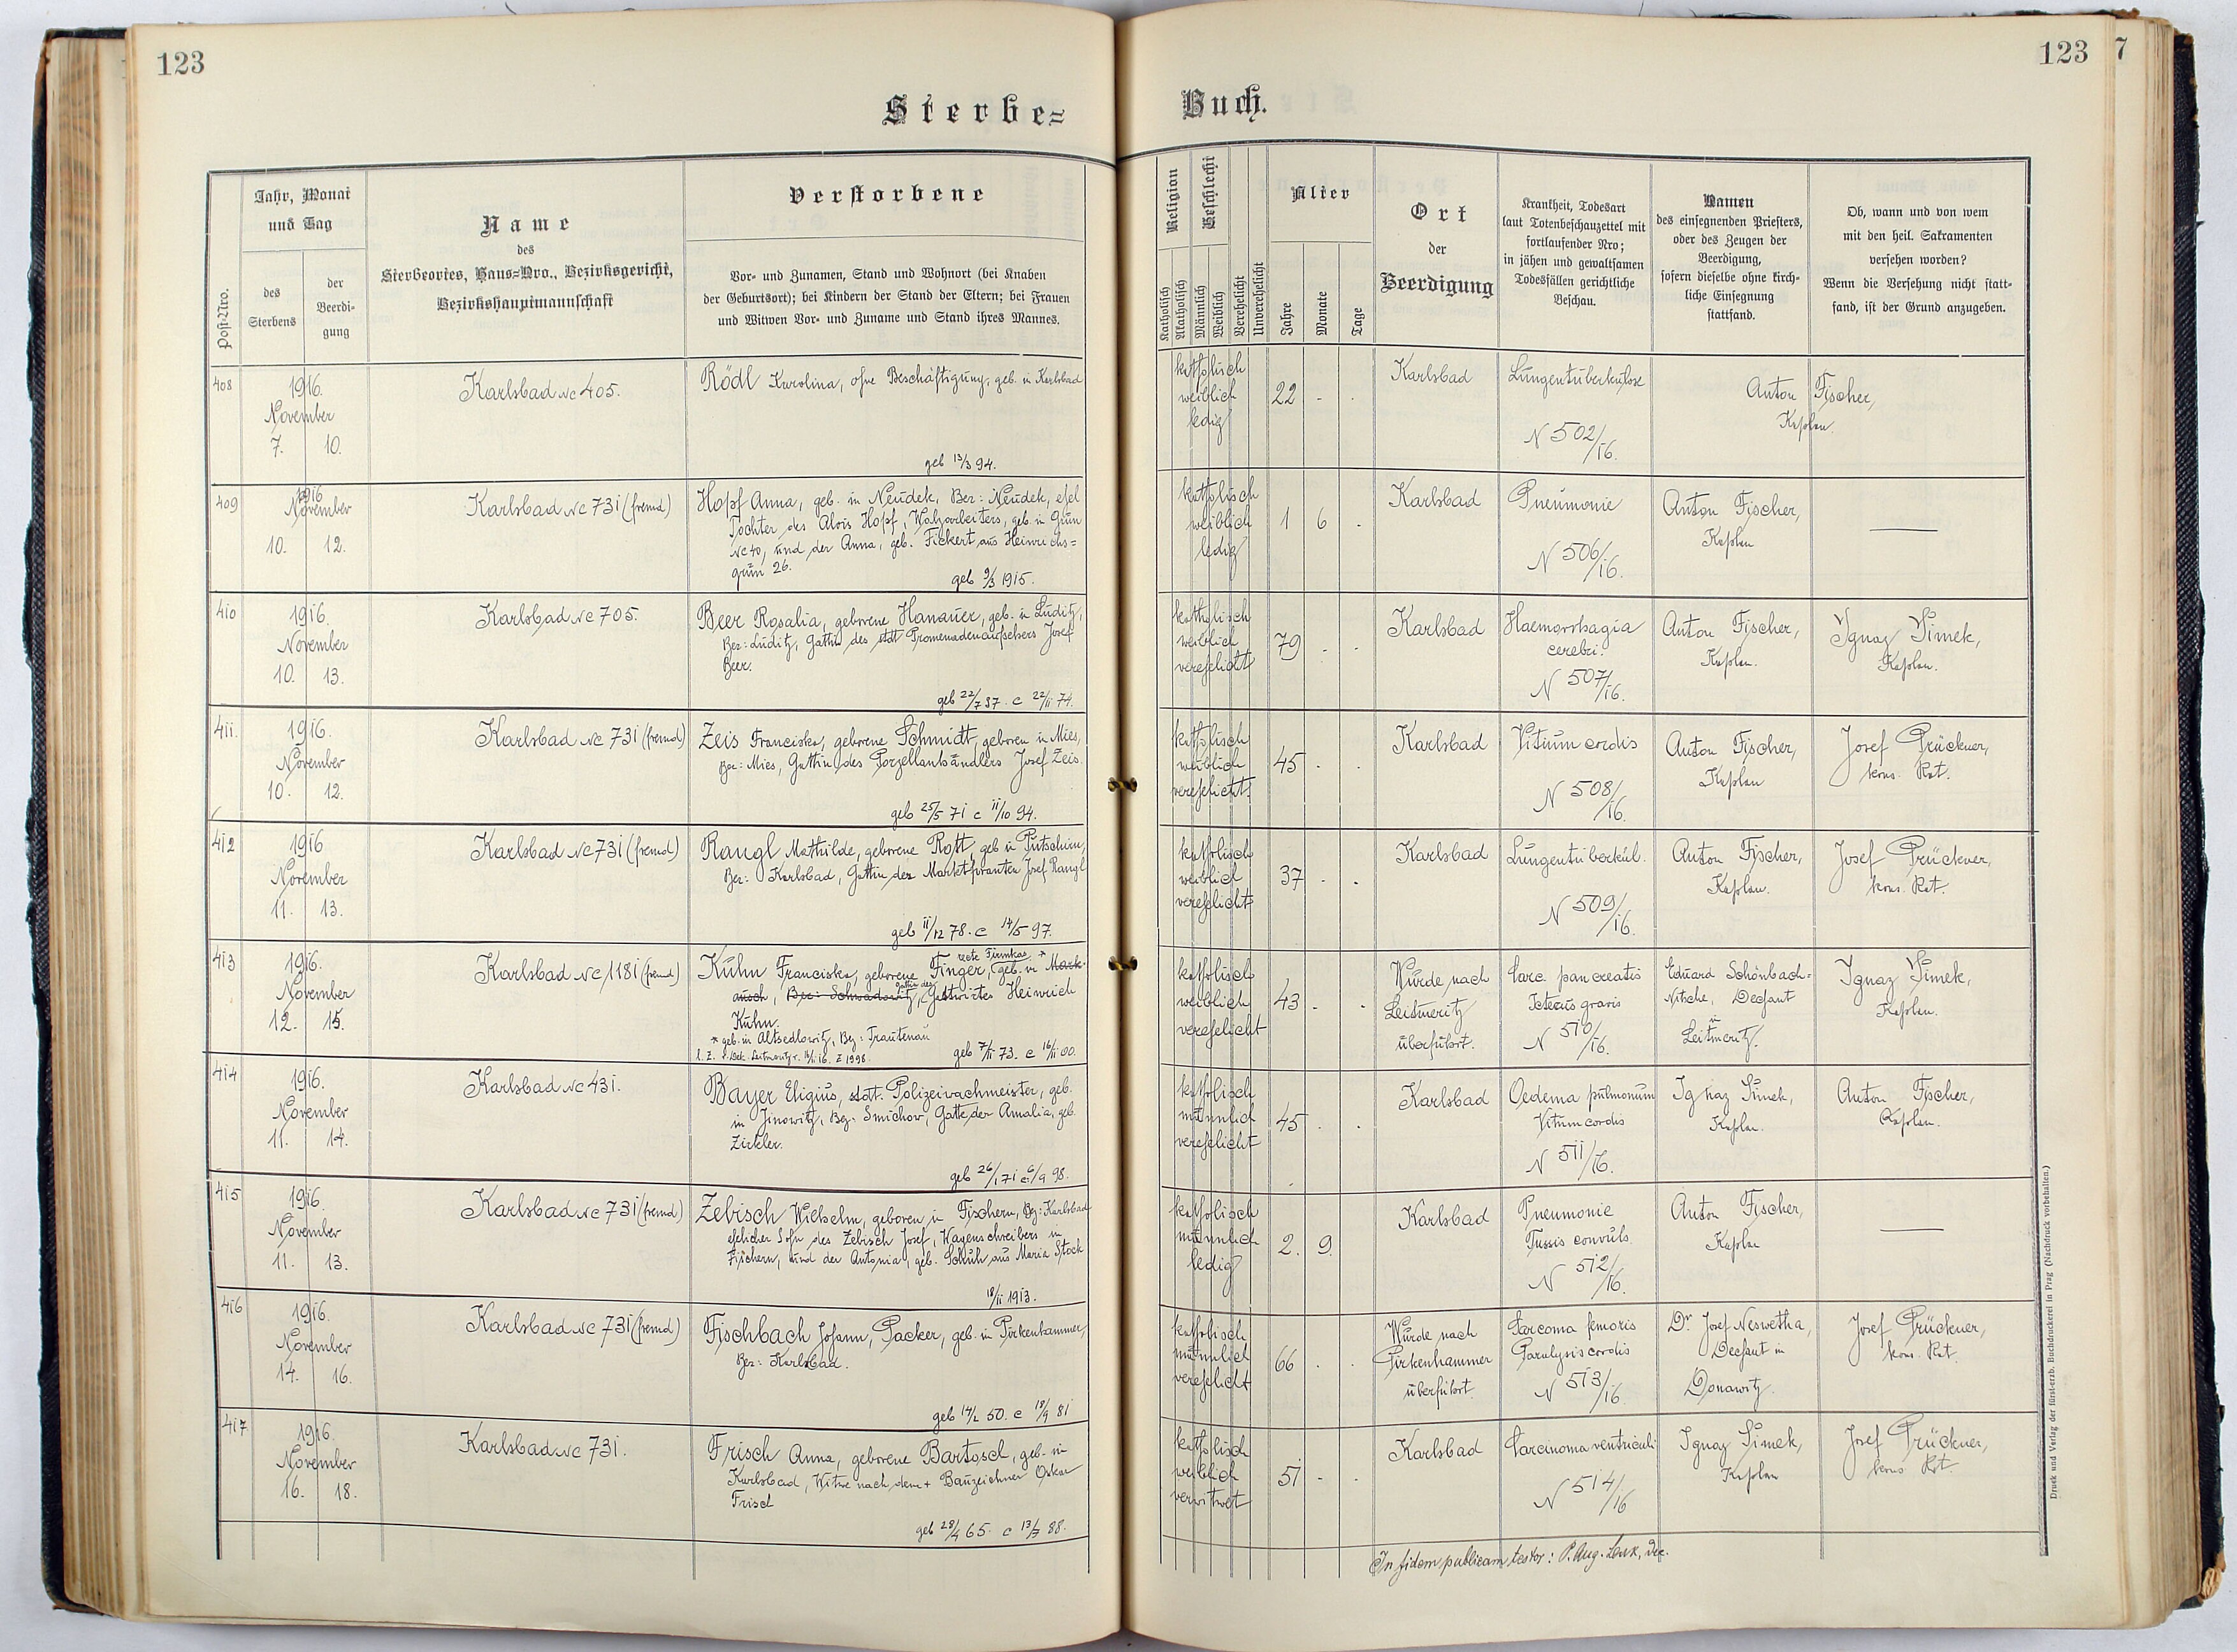 123
123
7
Sterbe=
Buch.
Post-Nro.
Jahr, Monat
und Tag
des
Sterbens
der
Beerdi-
gung
Name
des
Sterbeortes, Haus=Nro., Bezirksgericht,
Bezirkshauptmannschaft
Verstorbene
Vor- und Zunamen, Stand und Wohnort (bei Knaben
der Geburtsort); bei Kindern der Stand der Eltern; bei Frauen
und Witwen Vor- und Zuname und Stand ihres Mannes.
Religion
Katholisch
Akatholisch
Geschlecht
Männlich
Weiblich
Verehelicht
Unverehelicht
Alter
Jahre
Monate
Tage
Ort
der
Beerdigung
Krankheit, Todesart
laut Totenbeschauzettel mit
fortlaufender Nro;
in jähen und gewaltsamen
Todesfällen gerichtliche
Beschau.
Namen
des einsegnenden Priesters,
oder des Zeugen der
Beerdigung,
sofern dieselbe ohne kirch-
liche Einsegnung
stattfand.
Ob, wann und von wem
mit den heil. Sakramenten
versehen worden?
Wenn die Versehung nicht statt-
fand, ist der Grund anzugeben.
408
1916.
November
7. 10.
Karlsbad Nc 405.
Rödl Karolina, ohne Beschäftigung, geb. in Karlsbad
geb 13/3 94.
katholisch
weiblich
ledig
22 - .
Karlsbad
Lungentuberkulose
N 502/16.
Anton Fischer,
Kaplan.
409
1916
November
10. 12.
Karlsbad Nc 731 (fremd)
Hopf Anna, geb. in Neudek, Ber: Neudek, ehel
Tochter des Alois Hopf, Walzarbeiters, geb. in Grün
Nc 40, und der Anna, geb. Fickert aus Heinrichs=
grün 26.
geb 9/3 1915.
katholisch
weiblich
ledig
1 6 .
Karlsbad
Pneumonie
N 506/16.
Anton Fischer,
Kaplan
410
1916.
November
10. 13.
Karlsbad Nc 705.
Beer Rosalia, geborene Hanauer, geb. in Luditz,
Ber: Luditz, Gattin des stdt Promenadenaufsehers Josef
Beer.
geb 22/7 37. c 22/11 74.
katholisch
weiblich
verehelicht
79 . .
Karlsbad
Haemorrhagia
cerebri.
N 507/16.
Anton Fischer,
Kaplan.
Ignaz Simek,
Kaplan.
411.
1916.
November
10. 12.
Karlsbad Nc 731 (fremd)
Zeis Franciska, geborene Schmidt, geboren in Mies,
Ber: Mies, Gattin des Porzellanhändlers Josef Zeis.
geb 25/5 71 c 11/10 94.
katholisch
weiblich
verehelicht.
45 . .
Karlsbad
Vitium cordis
N 508/16.
Anton Fischer,
Kaplan
Josef Prückner,
kons. Rat.
412
1916
November
11. 13.
Karlsbad Nc 731 (fremd)
Rangl Mathilde, geborene Rott, geb in Putschirn,
Ber: Karlsbad, Gattin des Marktfieranten Josef Rangl
geb 11/12 78. c 14/5 97.
katholisch
weiblich
verehelicht
37 . .
Karlsbad
Lungentuberkul.
N 509/16.
Anton Fischer,
Kaplan.
Josef Prückner,
kons. Rat.
413
1916.
November
12. 15.
Karlsbad Nc 1181 (fremd)
recte Firmkas *
Kuhn Franciska, geborene Finger, geb. in Mark-
Gattin des
ausch, Ber: Schwadowitz, Gastwirtes Heinrich
Kuhn.
* geb. in Altsedlowitz, Bez: Trautenau
geb 7/11 73. c 16/11 00.
katholisch
weiblich
verehelicht
43 . .
Wurde nach
Leitmeritz
überführt.
Carc. pancreatis
Icterus gravis
N 510/16.
Eduard Schönbach=
Nitsche, Dechant
in
Leitmeritz.
Ignaz Simek,
Kaplan.
414
1916.
November
11. 14.
Karlsbad Nc 431.
Bayer Eligius, städt. Polizeiwachmeister, geb.
in Jinowitz, Bez: Smichow, Gatte der Amalia, geb.
Zirkler.
geb 26/1 71 c 6/9 98.
katholisch
männlich
verehelicht
45 . .
Karlsbad
Oedema pulmonum
Vitium cordis
N 511/16.
Ignaz Simek,
Kaplan.
Anton Fischer,
Kaplan.
415
1916.
November
11. 13.
Karlsbad Nc 731 (fremd)
Zebisch Wilhelm, geboren in Fischern, Bez: Karlsbad
ehelicher Sohn des Zebisch Josef, Wagenschreibers in
Fischern, und der Antonia, geb. Schuh aus Maria Stock
18/11 1913.
katholisch
männlich
ledig
2. 9.
Karlsbad
Pneumonie
Tussis convuls.
N 512/16.
Anton Fischer,
Kaplan
416
1916.
November
14. 16.
Karlsbad Nc 731 (fremd)
Fischbach Johann, Packer, geb. in Pirkenhammer,
Bez: Karlsbad.
geb 14/2 50. c 18/9 81
katholisch
männlich
verehelicht
66 . .
Wurde nach
Pirkenhammer
überführt.
Sarcoma femoris
Paralysis cordis
N 513/16.
Dr Josef Neswetha,
Dechant in
Donawitz.
Josef Prückner,
kons. Rat.
417
1916.
November
16. 18.
Karlsbad Nc 731.
Frisch Anna, geborene Bartosch, geb. in
Karlsbad, Witwe nach dem + Bauzeichner Oskar
Frisch
geb 28/4 65. c 13/7 88.
katholisch
weiblich
verwitwet
51 - .
Karlsbad
Carcinoma ventriculi
N 514/16
Ignaz Simek,
Kaplan
Josef Prückner,
kons Rat.
In fidem publicam testor: P. Aug. Lenk, Dec.
Druck und Verlag der fürst-erzb. Buchdruckerei in Prag (Nachdruck vorbehalten.)